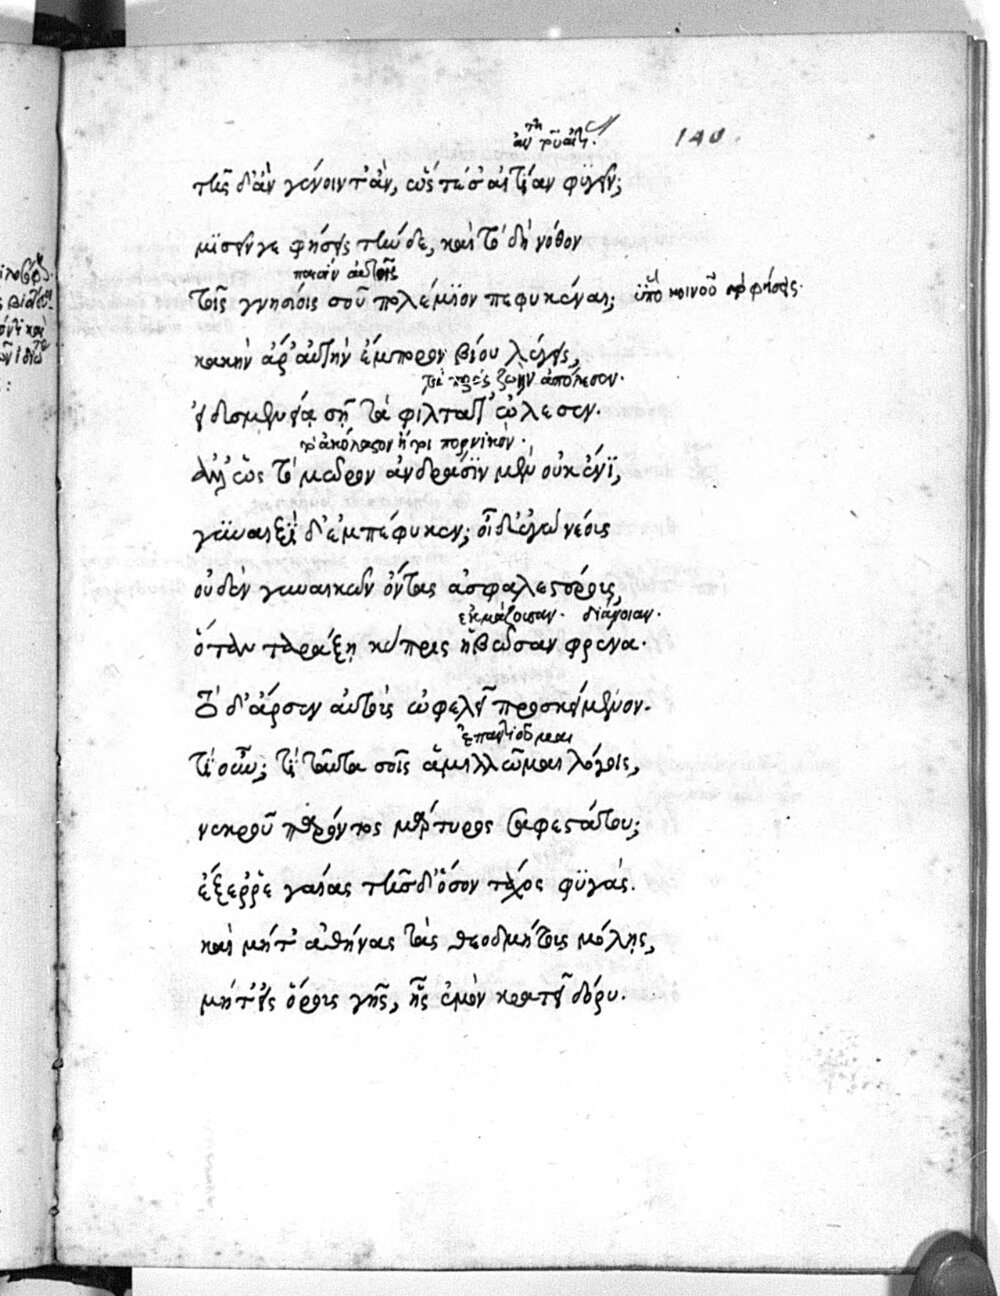 140.
τῆσδ' ἂν γένοιντ' ἂν, ὥστέ σ' αἰτίαν φυγεῖν;
μισεῖν γε φήσεις τήνδε, καὶ τὸ δὴ νόθον
τοῖς γνησίοις σου πολέμιον πεφυκέναι; ὑπὸ κοινοῦ τὸ φήσεις.
κακὴν ἄρ' αὐτὴν ἔμπορον βίου λέγεις,
εἰ δυσμενείᾳ σῇ τὰ φίλτατ' ὤλεσεν.
ἀλλ' ὡς τὸ μῶρον ἀνδράσιν μὲν οὐκ ἔνι,
γυναιξὶ δ' ἐμπέφυκεν; οἶδ' ἐγὼ νέοις
οὐδὲν γυναικῶν ὄντας ἀσφαλεστέροις,
ἐκμάζουσαν. διάνοιαν.
ὅταν ταράξῃ κύπρις ἡβῶσαν φρένα.
τὸ δ' ἄρσεν αὐτοῖς ὠφελεῖ προσκείμενον.
τί οὖν; τί ταῦτα σοῖς ἁμιλλῶμαι λόγοις,
νεκροῦ παρόντος μάρτυρος σαφεστάτου;
ἔξερρε γαίας τῆσδ' ὅσον τάχος φυγάς.
καὶ μήτ' ἀθήνας τὰς θεοδμήτους μόλῃς,
μήτ' εἰς ὅρους γῆς, ἧς ἐμὸν κρατεῖ δόρυ.